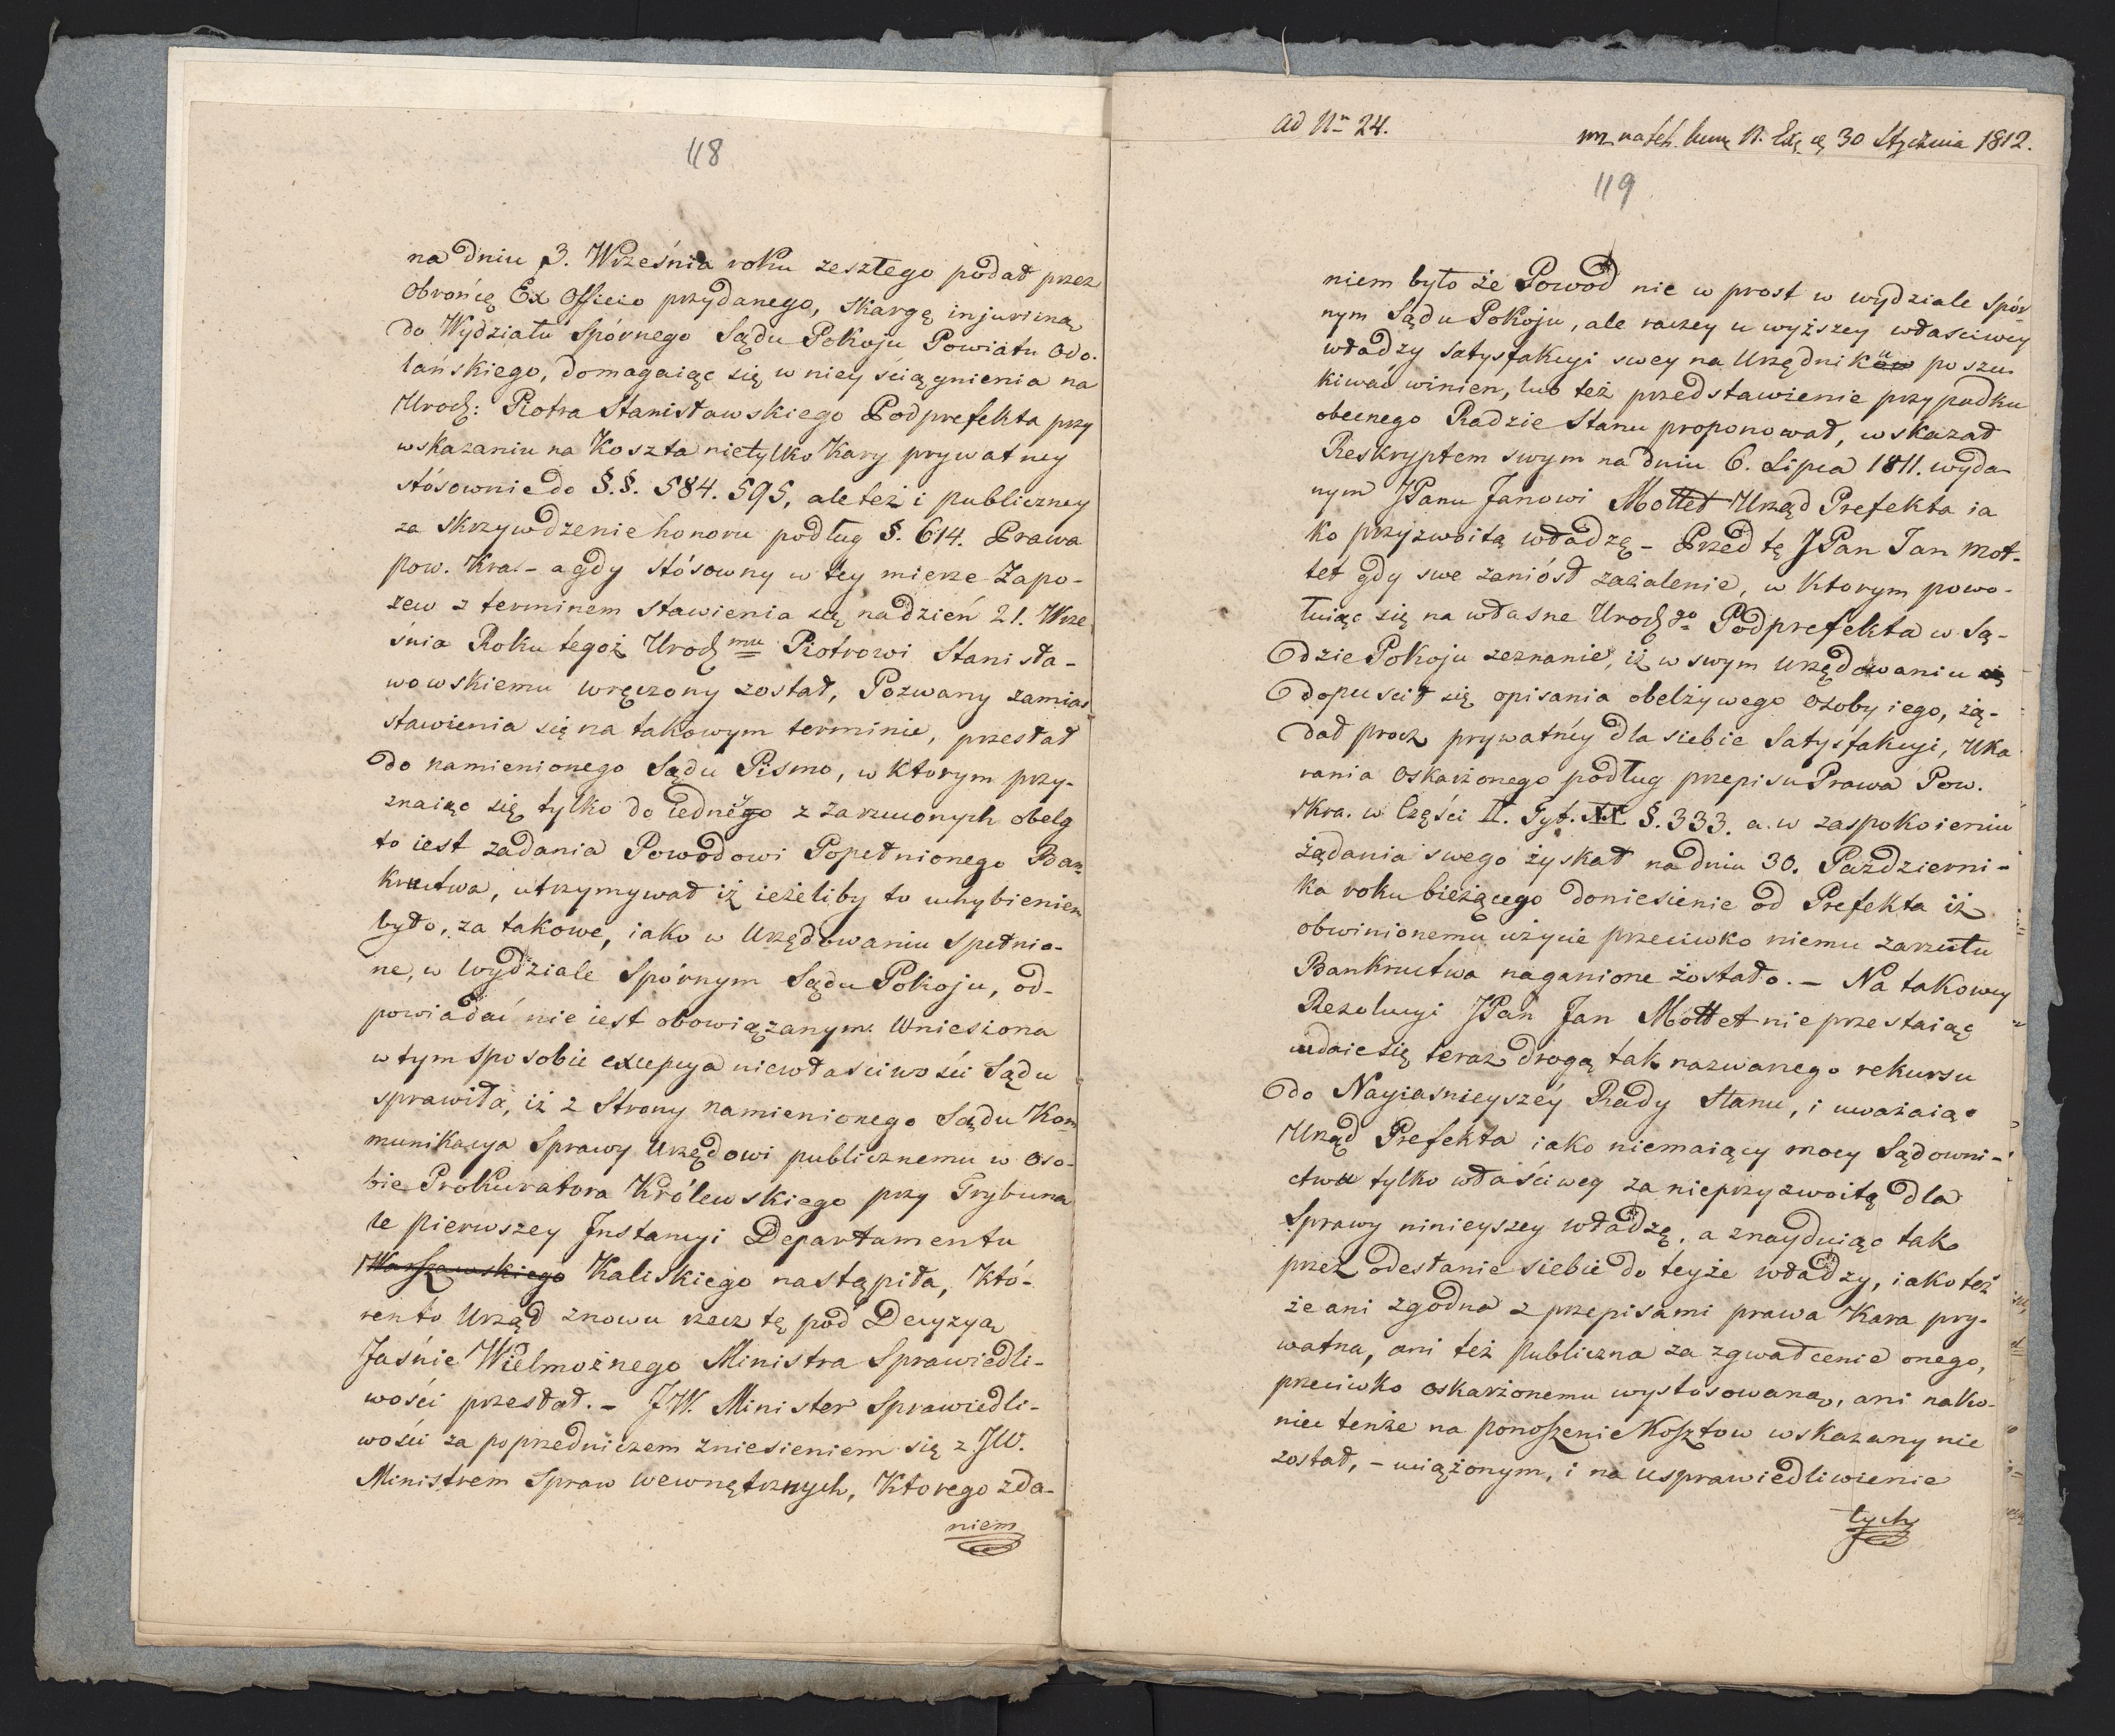 118
na dniu 3. Września roku zeszłego podał przez
Obrońcę Ex Officio przydanego, skargę injuriczną
do Wydziału Spórnego Sądu Pokoju Powiatu Odo-
lańskiego, domagaiąc się w niey ściągnienia na
Urodz: Piotra Stanisławskiego Podprefekta przy
wskazaniu na Koszta nietylko Kary prywatney
stósownie do §.§. 584. 595, ale też i publiczney
za skrzywdzenie honoru podług §. 614. Prawa
Pow. Kra. - a gdy stósowny w tey mierze Zapo-
zew z terminem stawienia się na dzień 21. Wrze
śnia Roku tegoż Urodz mu Piotrowi Stanisła-
wowskiemu wręczony został, Pozwany zamias
stawienia się na takowym terminie, przesłał
do namienionego Sądu Pismo, w ktorym przy-
znaiąc się tylko do iednego z zarzuconych obelg
to iest zadania Powodowi Popełnionego Ban-
kructwa, utrzymywał iż ieżeliby to uchybieniem
było, za takowe, iako w Urzędowaniu Spełnio-
ne, w Wydziale Spórnym Sądu Pokoju, od-
powiadać nie iest obowiązanym. Wniesiona
w tym sposobie excepcya niewłaściwości Sądu
sprawiła, iż z Strony namienionego Sądu Kom
munikacya Sprawy Urzędowi publicznemu w Oso-
bie Prokuratora Królewskiego przy Trybuna
le Pierwszey Instancyi Departamentu
Warszawskiego Kaliskiego nastąpiła, Któ-
rento Urząd znowu rzecz tę pod Decyzyą
Jaśnie Wielmożnego Ministra Sprawiedli-
wości przesłał. - JW. Minister Sprawiedli-
wości za poprzedniczem zniesieniem się z JW.
Ministrem Spraw wewnętrznych, Ktorego zda-
niem
ad Nr 24.
30 Stycznia 1812.
119
niem było że Powod nie w prost w wydziale Spór
nym Sądu Pokoju, ale raczey u wyższey właściwey
władzy Satysfakcyi swey na Urzędniku poszu-
kiwać winien, lub też przedstawienie przypadku
obecnego Radzie Stanu proponował, wskazał
Reskryptem swym na dniu 6. Lipca 1811. wyda-
nym JPanu Janowi Mottet Urząd Prefekta ia
ko przyzwoitą władzę - Przed tę JPan Jan Mot-
tet gdy swe zaniósł zażalenie, w Ktorym powo-
łuiąc się na własne Urodzgo Podprefekta w Są-
dzie Pokoju zeznanie, iż w swym urzędowaniu
dopuscił się opisania obelżywego Osoby iego, żą-
dał procz prywatnéy dla siebie Satysfakcyi, Uka
rania Oskarżonego podług przepisu Prawa Pow.
Kra. w Części II. Tyt. XX §. 333. a. w zaspokoieniu
żądania swego zyskał na dniu 30. Październi-
ka roku bieżącego doniesienie od Prefekta iż
obwinionemu użycie przeciwko niemu zarzutu
Bankructwa naganione zostało. - Na takowey
Rezolucyi JPan Jan Mottet nieprzestaiąc
udaie się teraz drogą tak nazwanego rekursu
do Nayiasnieyszéy Rady Stanu, i uważaiąc
Urząd Prefekta iako niemaiący mocy Sądowni-
ctwu tylko właściwey za nieprzyzwoitą dla
Sprawy ninieyszey władzę, a znayduiąc tak
przez odesłanie siebie do teyże władzy, iako też
że ani zgodna z przepisami prawa Kara pry-
watna, ani też publiczna za zgwałcenie onego,
przeciwko oskarżonemu wystosowana, ani nako-
niec tenże na ponoszenie Kosztow wskazany nie
został, - uciążonym, i na usprawiedliwienie
tych